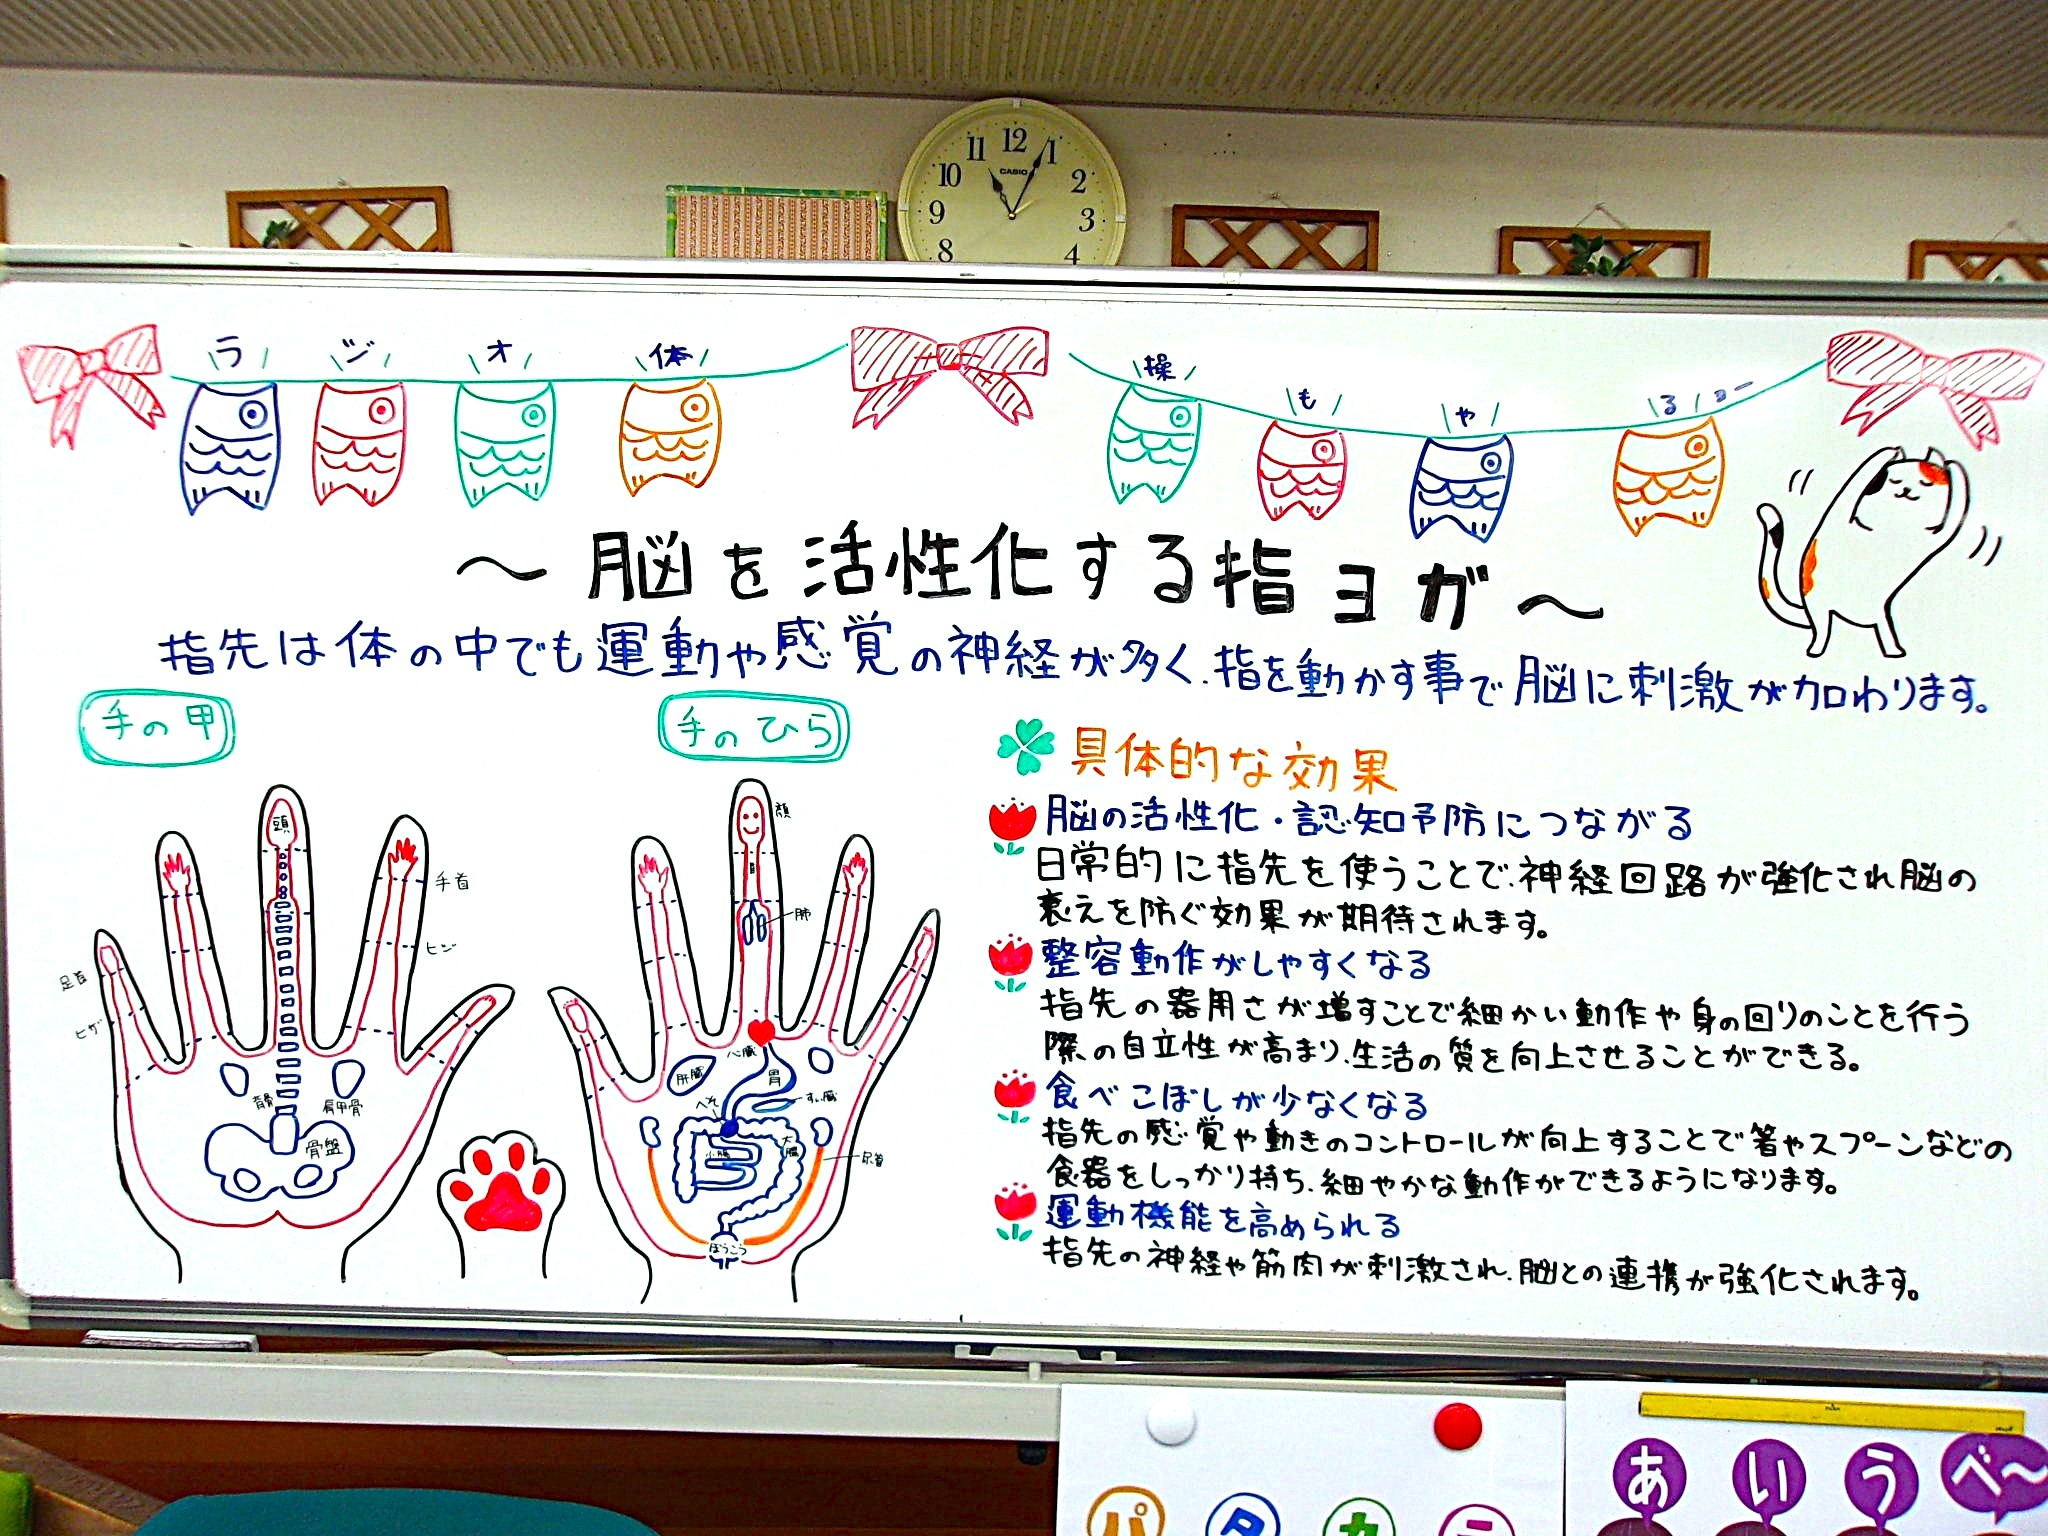 11 12 1
10 2
9 3
8 4
CASIO
ラジオ体操もやるヨー
～脳を活性化する指ヨガ～
指先は体の中でも運動や感覚の神経が多く、指を動かす事で脳に刺激が加わります。
手の甲
頭
手首
ヒジ
足首
ヒザ
背骨
肩甲骨
骨盤
手のひら
顔
肺
心臓
肝臓
胃
へそ
すい臓
小腸
大腸
尿管
ぼうこう
具体的な効果
脳の活性化・認知予防につながる
日常的に指先を使うことで、神経回路が強化され脳の
衰えを防ぐ効果が期待されます。
整容動作がしやすくなる
指先の器用さが増すことで細かい動作や身の回りのことを行う
際の自立性が高まり、生活の質を向上させることができる。
食べこぼしが少なくなる
指先の感覚や動きのコントロールが向上することで箸やスプーンなどの
食器をしっかり持ち、細やかな動作ができるようになります。
運動機能を高められる
指先の神経や筋肉が刺激され、脳との連携が強化されます。
パタカラ
あいうべ～